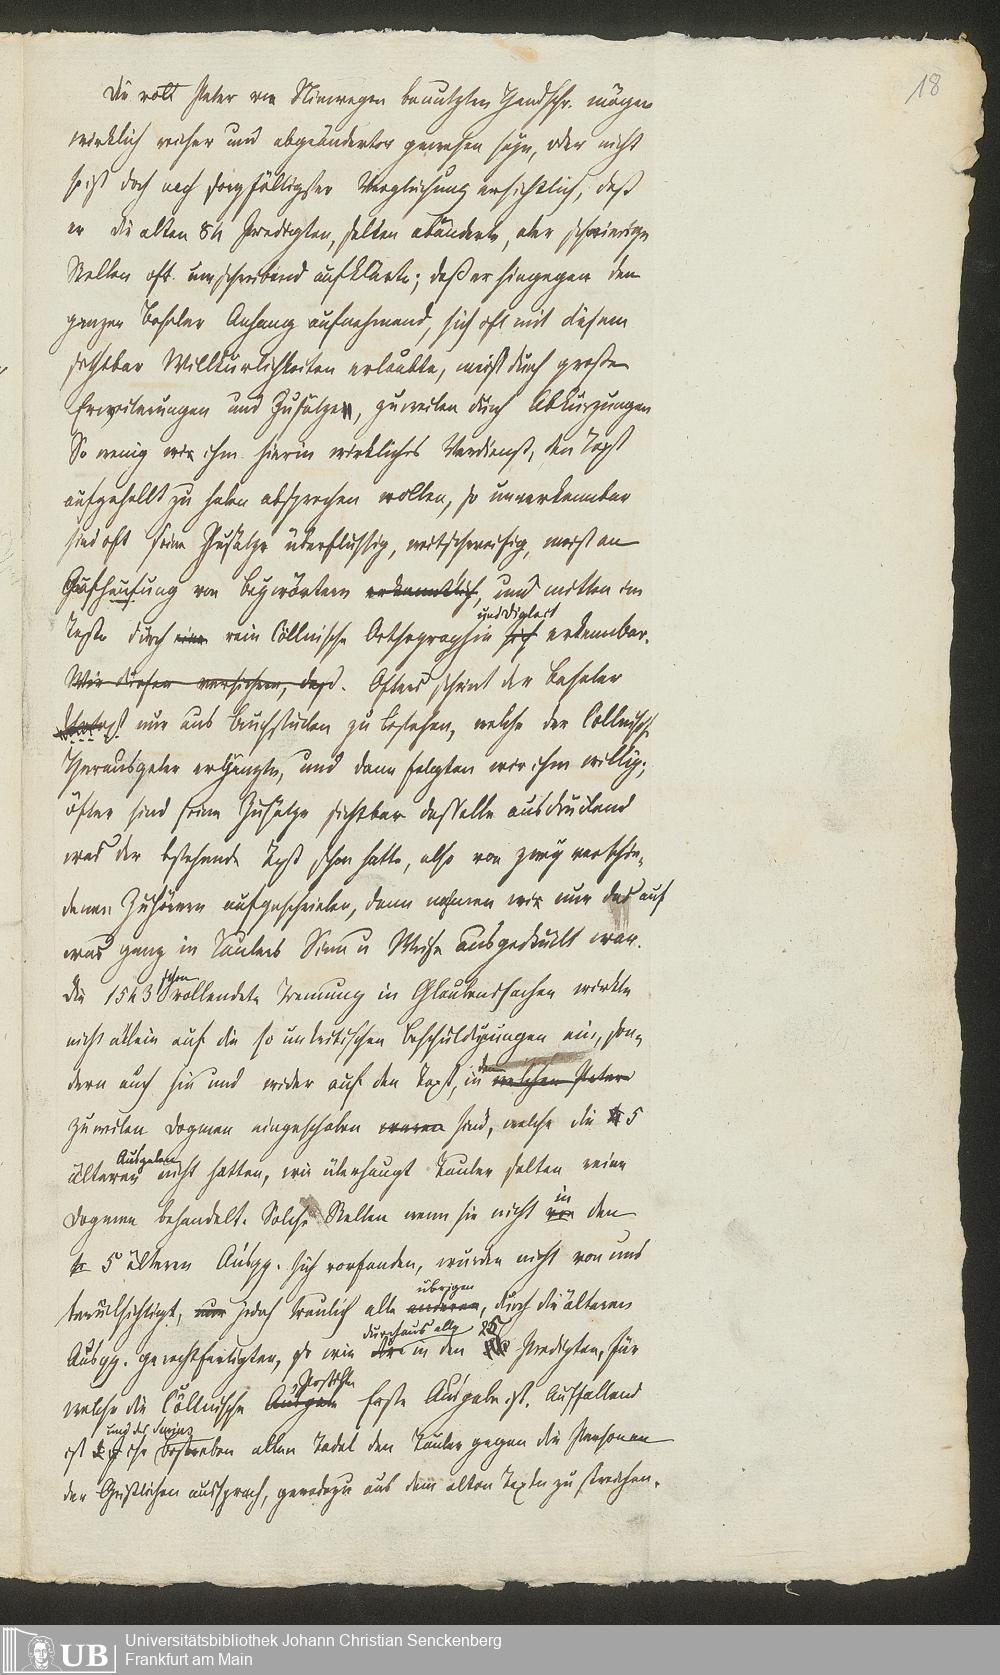 18
Die von Peter von Nimwegen benutzten Handschr. mögen
wirklich reicher und abgeändertor gewesen seyn, oder nicht
so ist doch nach sorgfältigster Vergleichung ersichtlich, daß
er die alten 84 Predigten, selten abänderte, aber schwierige
Stellen oft umschreibend aufklärte; daß er hingegen den
ganzen Baseler Anhang aufnehmend, sich oft mit diesem
sichtbar Willkürlichkeiten erlaubte, meist durch große
Erweiterungen und Zusätzen, zuweilen durch Abkürzungen
So wenig wir ihm hierin wirkliches Verdienst, den Text
aufgehellt zu haben absprechen wollen, so unverkennbar
sind oft seine Zusätze überflüssig, weitschweifig, meist an
Aufhäufung von Beywörtern erkenntlich, und mitten im
und Dialect
Texte durch eine rein Cöllnische Orthographie sich erkennbar.
Wir dürfen versichern, daß. Öfters scheint der Baseler
Text nur aus Bruchstücken zu bestehen, welche der Collnische
Herausgeber ergänzte, und dann folgten wir ihm willig;
öfter sind seine Zusätze sichtbar dasselbe ausdrückend
was der bestehende Text schon hatte, also von zwey verschie-
denen Zuhörern aufgeschrieben, dann nahmen wir nur das auf
was ganz in Taulers Sinn u Weise ausgedrückt war.
schon
Die 1543 vollendete Trennung in Glaubenssachen wirkte
nicht allein auf die so unkritischen Beschuldigungen ein, son-
dern auch hin und wider auf den Text, in welchen Peter
dem
zuweilen Dogmen eingeschoben waren sind, welche die 5
Ausgaben
älteren nicht hatten, wie überhaupt Tauler selten reine
Dogmen behandelt. Solche Stellen wenn sie nicht von den
in
5 älteren Ausgg. sich vorfanden, wurden nicht von uns
übrigen
berücksichtigt, nur jedoch treulich alle anderen, durch die älteren
durchaus alle 25
Ausgg. gerechtfertigten, so wie in den Predigten, für
welche die Cöllnische Ausgabe Erste Ausgabe ist. Auffallend
und des Surius
ist ihr bestreben allen Tadel den Tauler gegen die Personen
der Geistlichen aussprach, geradezu aus dem alten Texte zu streichen.
UB
Universitätsbibliothek Johann Christian Senckenberg
Frankfurt am Main